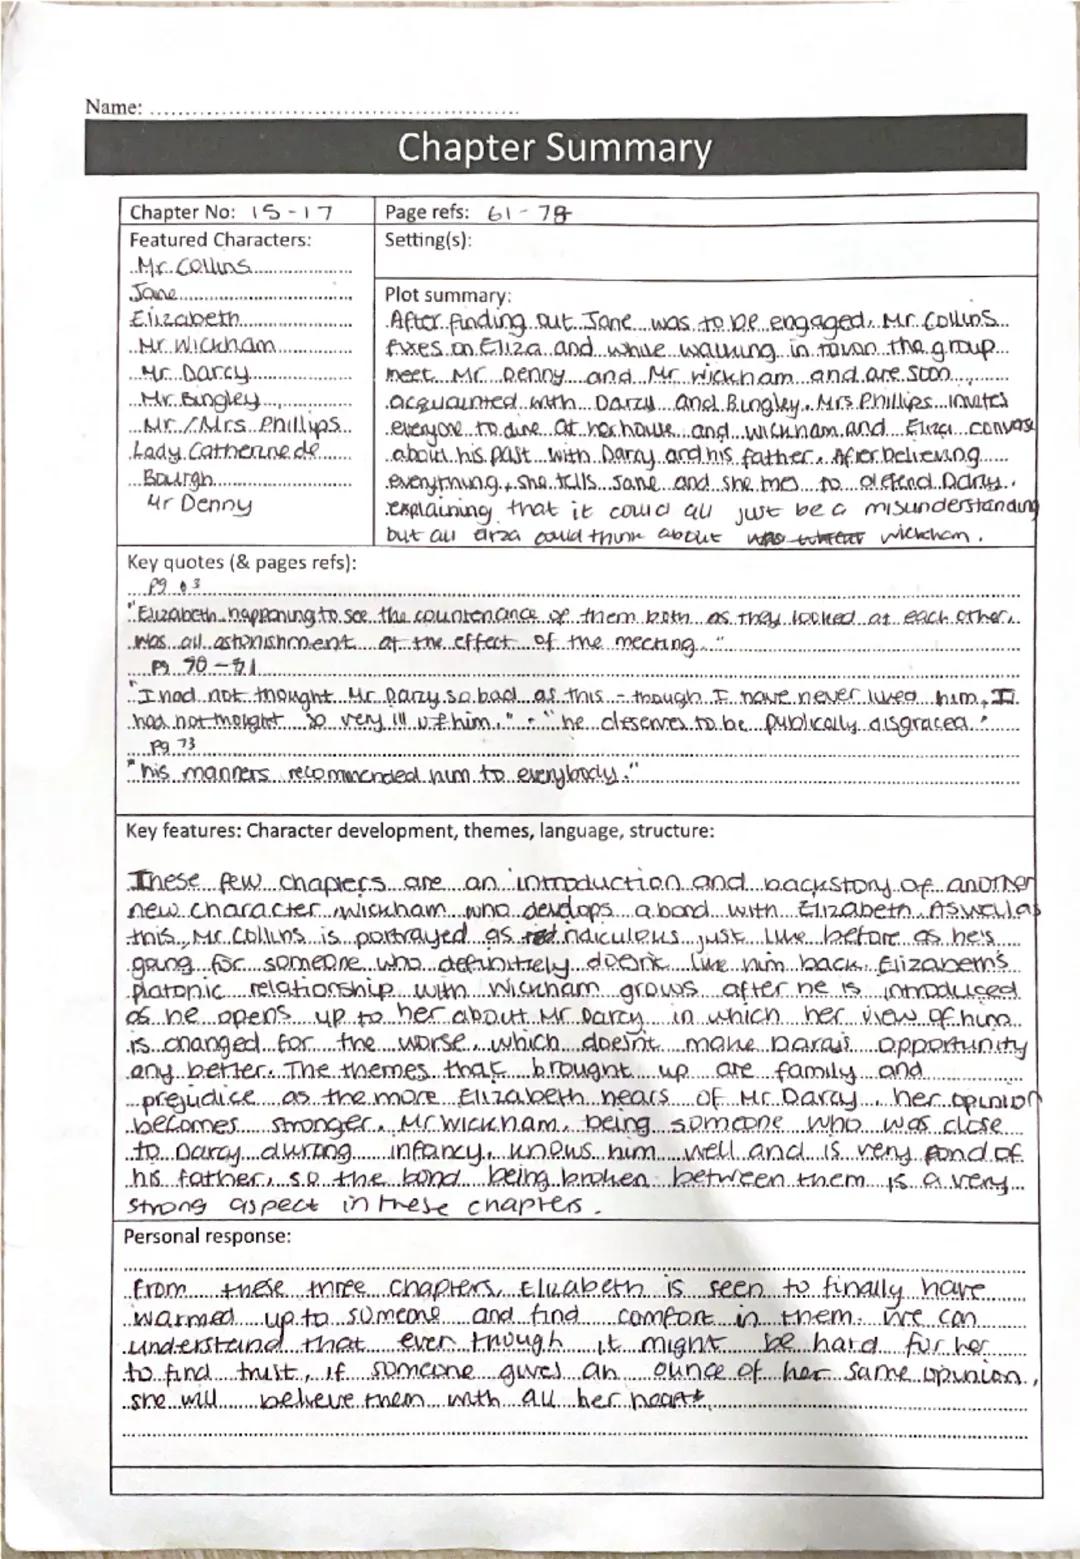 Name:
Chapter Summary
Chapter No: 15-17
Page refs: 61-78
Featured Characters:
Mr. Collins
Jane
Elizabeth
Mr. Wickham
Mr. Darcy
Mr. Bingley
Mr. / Mrs. Phillips
Lady Catherine de
Bourgh
Mr Denny
Setting(s):
Plot summary:
After finding out Jane was to be engaged, Mr. Collins
fixes on Eliza and while walking in town the group
meet Mr Denny and Mr Wickham and are soon
acquainted with Darcy and Bingley. Mrs Phillips invites
everyone to dine at her house and Wickham and Eliza convase
about his past with Darcy and his father. After believing
everything, she tells Jane and she tries to defend Darcy,
explaining that it could all just be a misunderstanding
but all Eliza could think about was Wickham.
Key quotes (& pages refs):
Pg 63
"Elizabeth happening to see the countenance of them both as they looked at each other,
was all astonishment at the effect of the meeting."
Pg
"I had not thought Mr Darcy so bad as this - though I have never liked him, I
had not thought so very ill of him." - "he deserves to be publically disgraced."
Pg 73
"his manners recommended him to everybody."
Key features: Character development, themes, language, structure:
These few chapters are an introduction and backstory of another
new character Wickham who develops a bond with Elizabeth. Aswell as
this, Mr. Collins is portrayed as ridiculous just like before as he's
going for someone who definitely doesn't like him back. Elizabeth's
platonic relationship with Wickham grows after he is introduced
as he opens up to her about Mr Darcy in which her view of him
is changed for the worse, which doesn't make Darcy's opportunity
any better. The themes that brought up are family and
prejudice as the more Elizabeth hears of Mr. Darcy, her opinion
becomes stronger. Mr Wickham, being someone who was close
to Darcy during infancy, knows him well and is very fond of
his father, so the bond being broken between them is a very
strong aspect in these chapters.
Personal response:
From these three chapters, Elizabeth is seen to finally have
warmed up to someone and find comfort in them. We can
understand that even though it might be hard for her
to find trust, if someone gives an ounce of her same opinion,
she will believe them with all her heart.